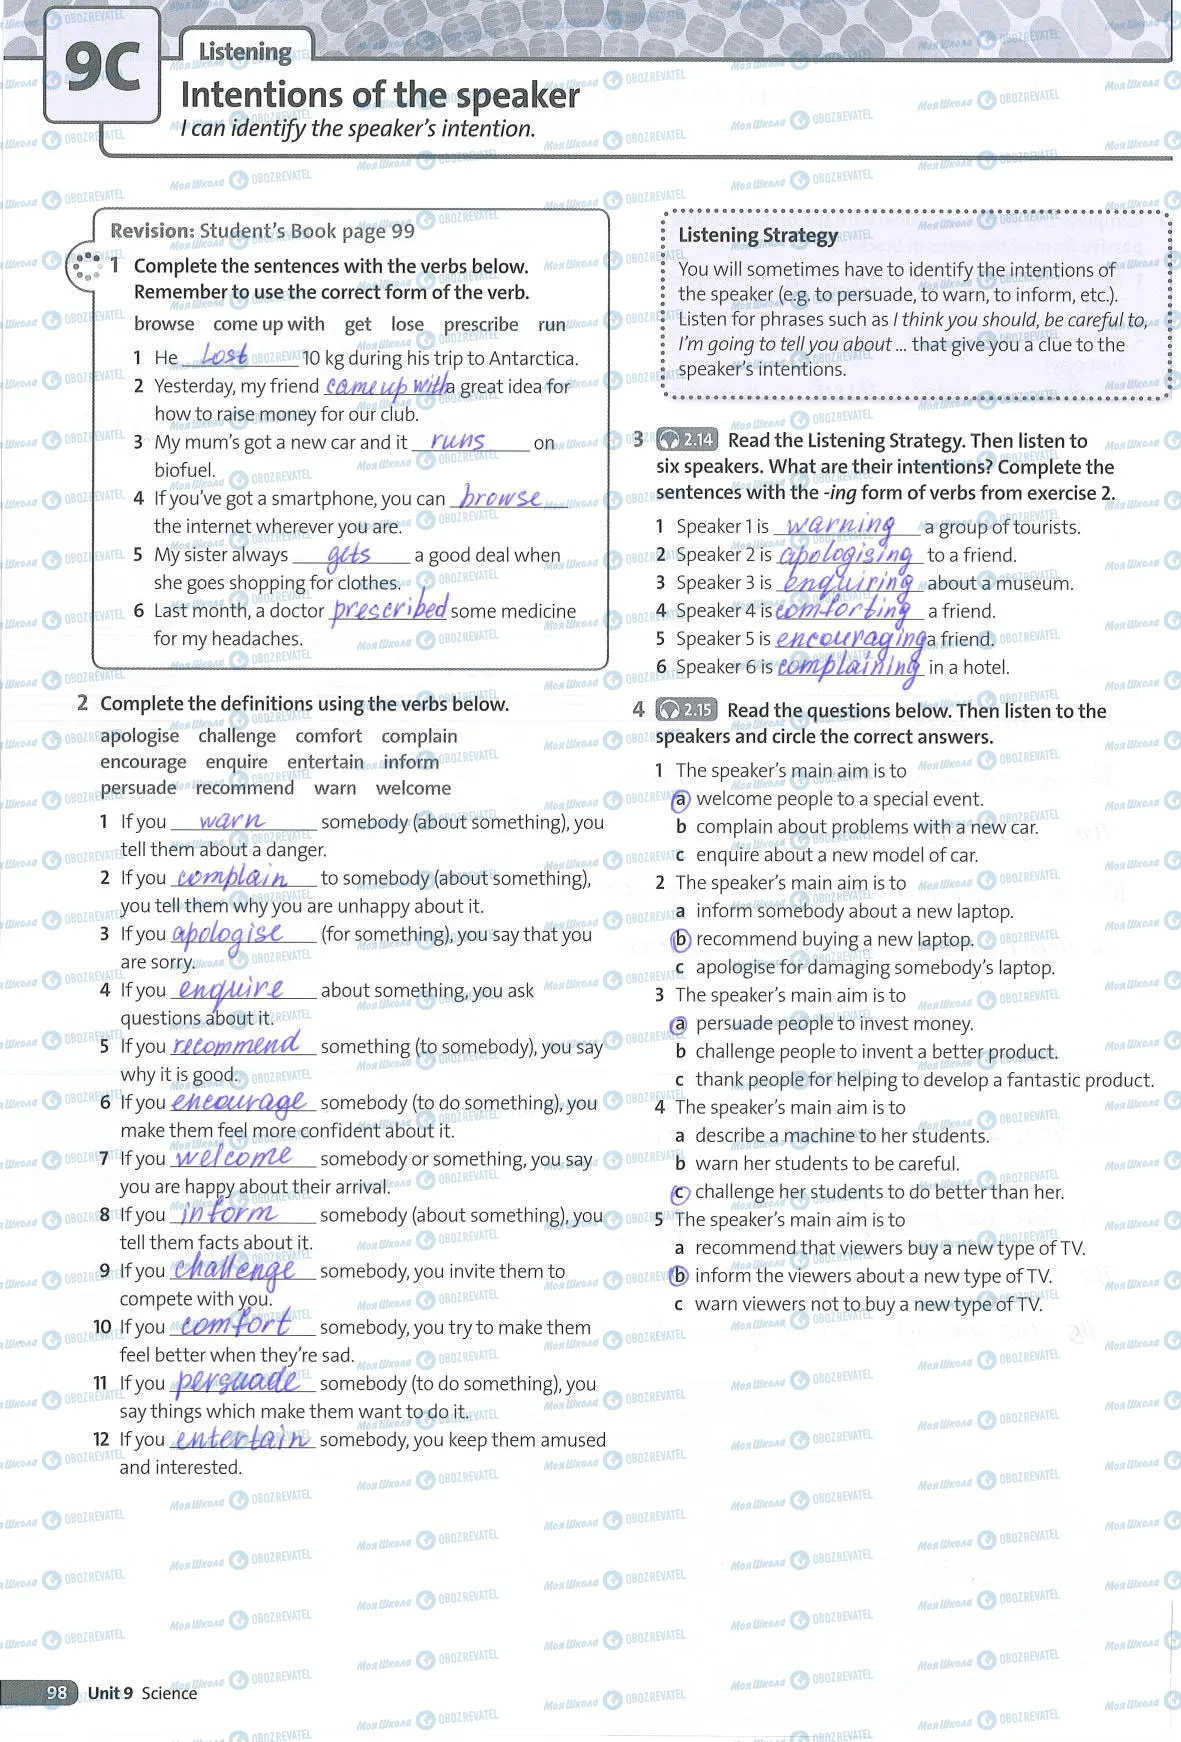 9C
Listening
Intentions of the speaker
I can identify the speaker's intention.
Revision: Student's Book page 99
1 Complete the sentences with the verbs below.
Remember to use the correct form of the verb.
browse come up with get lose prescribe run
1 He lost 10 kg during his trip to Antarctica.
2 Yesterday, my friend came up with a great idea for
how to raise money for our club.
3 My mum's got a new car and it runs on
biofuel.
4 If you've got a smartphone, you can browse
the internet wherever you are.
5 My sister always gets a good deal when
she goes shopping for clothes.
6 Last month, a doctor prescribed some medicine
for my headaches.
2 Complete the definitions using the verbs below.
apologise challenge comfort complain
encourage enquire entertain inform
persuade recommend warn welcome
1 If you warn somebody (about something), you
tell them about a danger.
2 If you complain to somebody (about something),
you tell them why you are unhappy about it.
3 If you apologise (for something), you say that you
are sorry.
4 If you enquire about something, you ask
questions about it.
5 If you recommend something (to somebody), you say
why it is good.
6 If you encourage somebody (to do something), you
make them feel more confident about it.
7 If you welcome somebody or something, you say
you are happy about their arrival.
8 If you inform somebody (about something), you
tell them facts about it.
9 If you challenge somebody, you invite them to
compete with you.
10 If you comfort somebody, you try to make them
feel better when they're sad.
11 If you persuade somebody (to do something), you
say things which make them want to do it.
12 If you entertain somebody, you keep them amused
and interested.
Listening Strategy
You will sometimes have to identify the intentions of
the speaker (e.g. to persuade, to warn, to inform, etc.).
Listen for phrases such as I think you should, be careful to,
I'm going to tell you about ... that give you a clue to the
speaker's intentions.
3 2.14 Read the Listening Strategy. Then listen to
six speakers. What are their intentions? Complete the
sentences with the -ing form of verbs from exercise 2.
1 Speaker 1 is warning a group of tourists.
2 Speaker 2 is apologising to a friend.
3 Speaker 3 is enquiring about a museum.
4 Speaker 4 is comforting a friend.
5 Speaker 5 is encouraging a friend.
6 Speaker 6 is complaining in a hotel.
4 2.15 Read the questions below. Then listen to the
speakers and circle the correct answers.
1 The speaker's main aim is to
a welcome people to a special event.
b complain about problems with a new car.
c enquire about a new model of car.
2 The speaker's main aim is to
a inform somebody about a new laptop.
b recommend buying a new laptop.
c apologise for damaging somebody's laptop.
3 The speaker's main aim is to
a persuade people to invest money.
b challenge people to invent a better product.
c thank people for helping to develop a fantastic product.
4 The speaker's main aim is to
a describe a machine to her students.
b warn her students to be careful.
c challenge her students to do better than her.
5 The speaker's main aim is to
a recommend that viewers buy a new type of TV.
b inform the viewers about a new type of TV.
c warn viewers not to buy a new type of TV.
98 Unit 9 Science
Моя Школа OBOZREVATEL